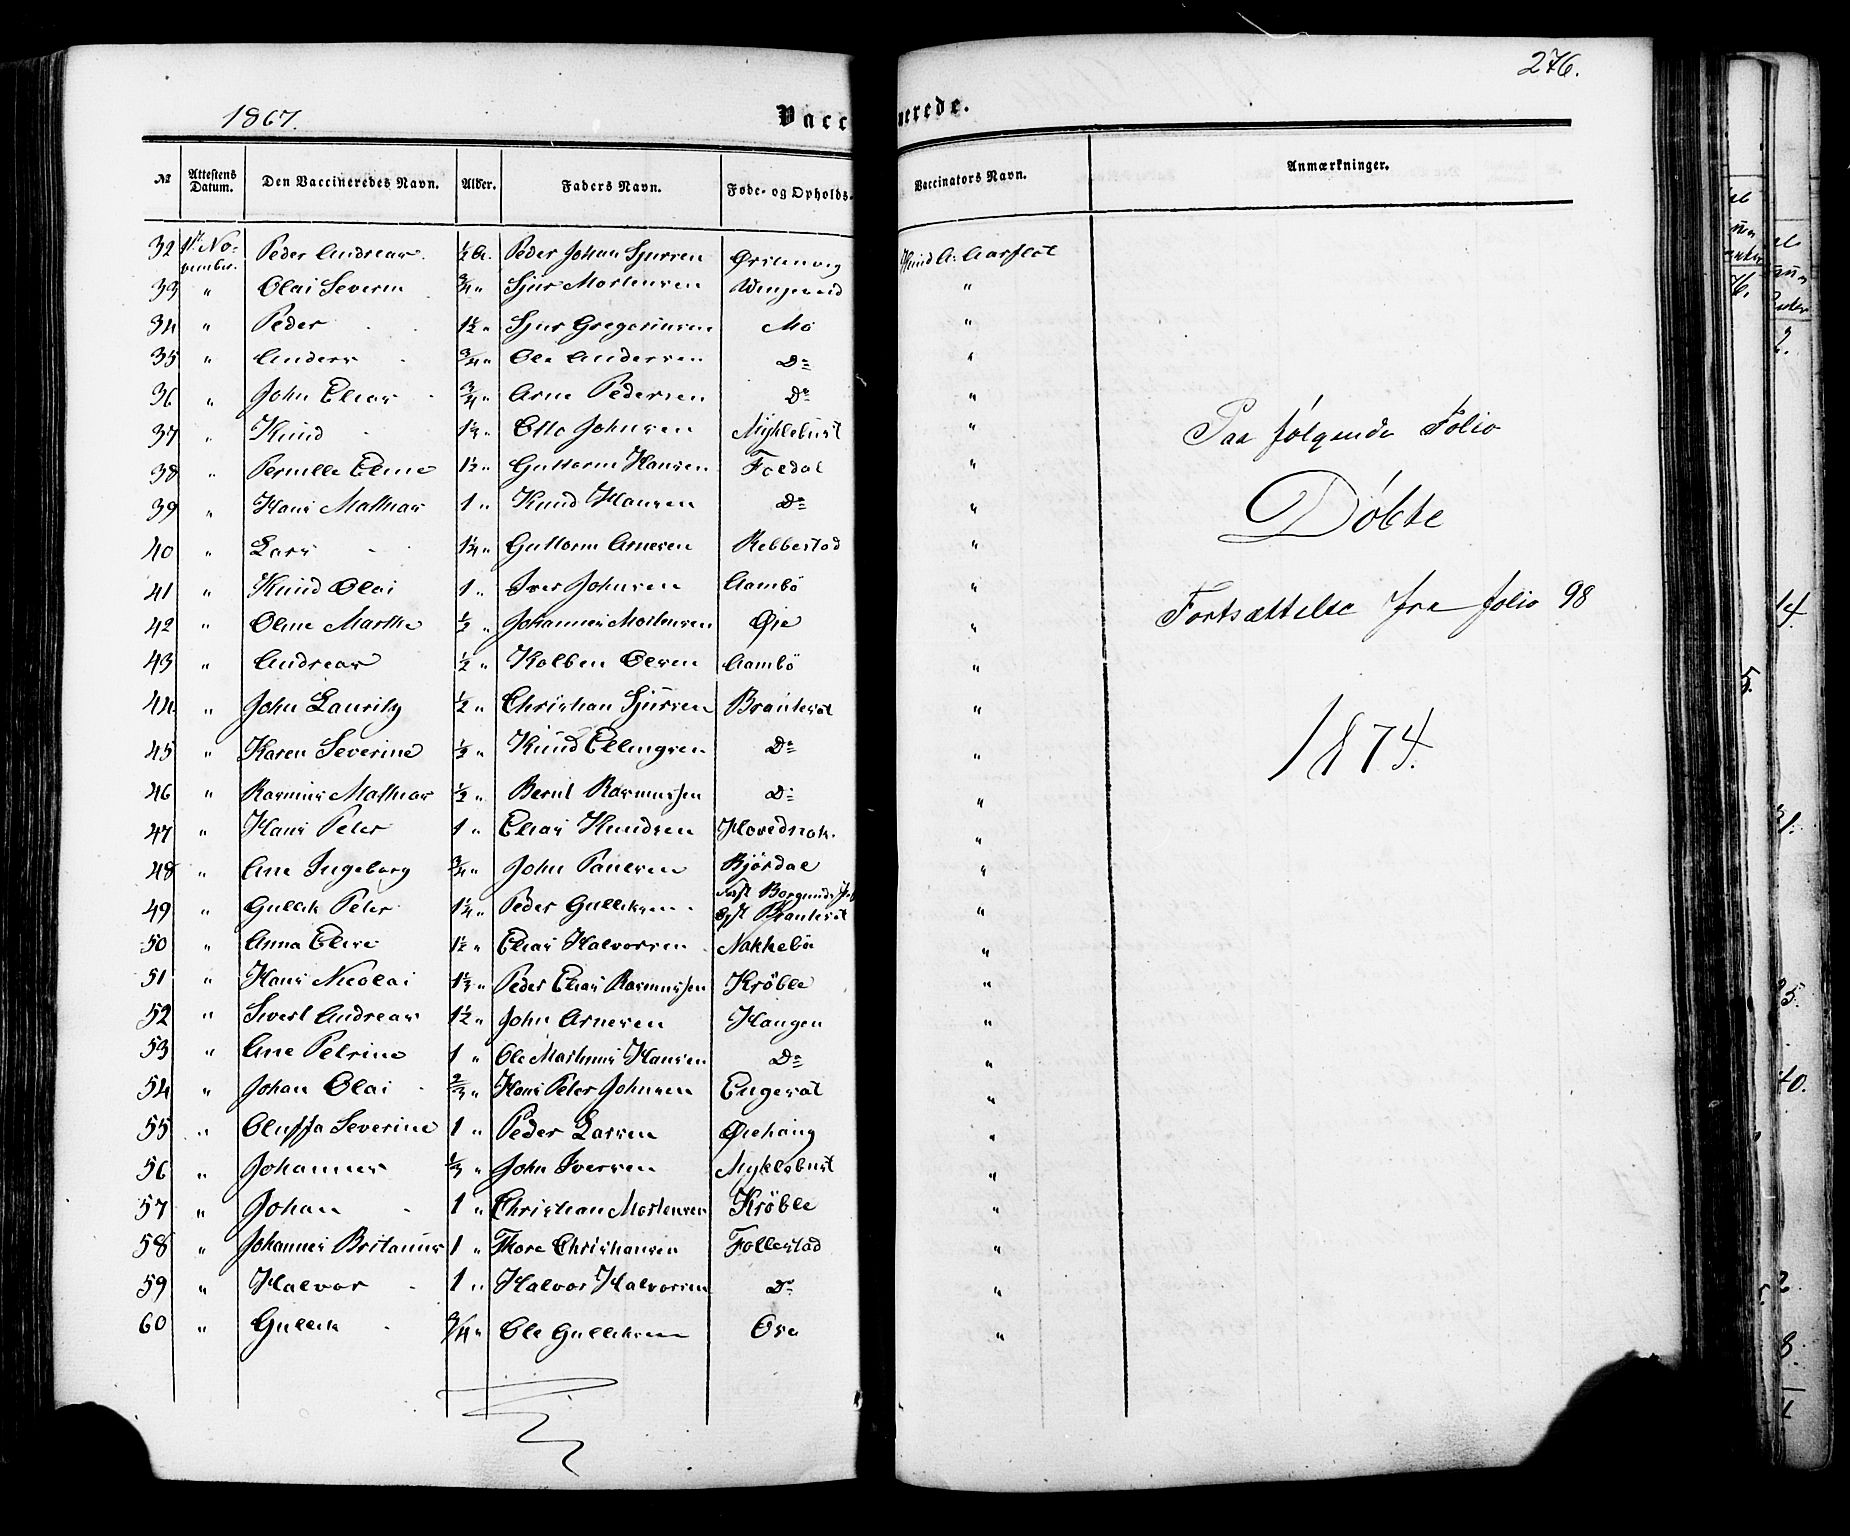 276.
1867.
Vaccinerede.
№ Attestens Datum. Den Vaccineredes Navn. Alder. Faders Navn. Føde- og Opholds- Vaccinators Navn. Anmærkninger.
32 1ste November. Peder Andreas ½ A. Peder Johan Sjursen Ørstenvig Knud A. Aarflot
33 " Olai Severin ¾ " Sjur Mortensen "
34 " Peder 1½ " Sjur Gregoriusen Mo "
35 " Anders ¾ " Ole Andersen Do "
36 " John Elias ¾ " Arne Pedersen Do "
37 " Knud Otto Johnsen Myklebust "
38 " Pernille Eline 1½ " Guttorm Hansen Foldal "
39 " Hans Mathias 1 " Knud Hansen Do "
40 " Lars 1¼ " Guttorm Arnesen Rebbestad "
41 " Knud Olai 1 " Iver Johnsen Aambö "
42 " Oline Marthe ½ " Johannes Mortensen Øie "
43 " Andreas ½ " Kolben Olsen Aambö "
44 " John Lauritz ½ " Christian Sjursen Brautesæt "
45 " Karen Severine ½ " Knud Ellingsen Do "
46 " Rasmus Mathias ½ " Bernt Rasmussen Do "
47 " Hans Peter 1 " Elias Knudsen Hovednak. "
48 " Ane Ingeborg ¾ " John Paulsen Bjørdal "
49 " Gullik Peter 1¼ " Peder Gulliksen Født Borgund Opft Brautesæt "
50 " Anna Elise 1½ " Elias Halvorsen Nakkebö "
51 " Hans Nicolai 1⅓ " Peder Elias Rasmussen Krøble "
52 " Sivert Andreas 1½ " John Arnesen Haugen "
53 " Ane Petrine 1 " Ole Martinus Hansen Do "
54 " Johan Olai ⅔ " Hans Peter Johnsen Engesæt "
55 " Oluffa Severine 1 " Peder Larsen Øiehaug "
56 " Johannes ⅓ " John Iversen Myklebust "
57 " Johan 1 " Christian Mortensen Krøble "
58 " Johannes Britanus 1 " Thore Christiansen Follestad "
59 " Halvor 1 " Halvor Halvorsen Do "
60 " Gullik ¾ " Ole Gulliksen Ose "
Paa følgende Folio
Døbte
Fortsættelse fra folio 98
1874.